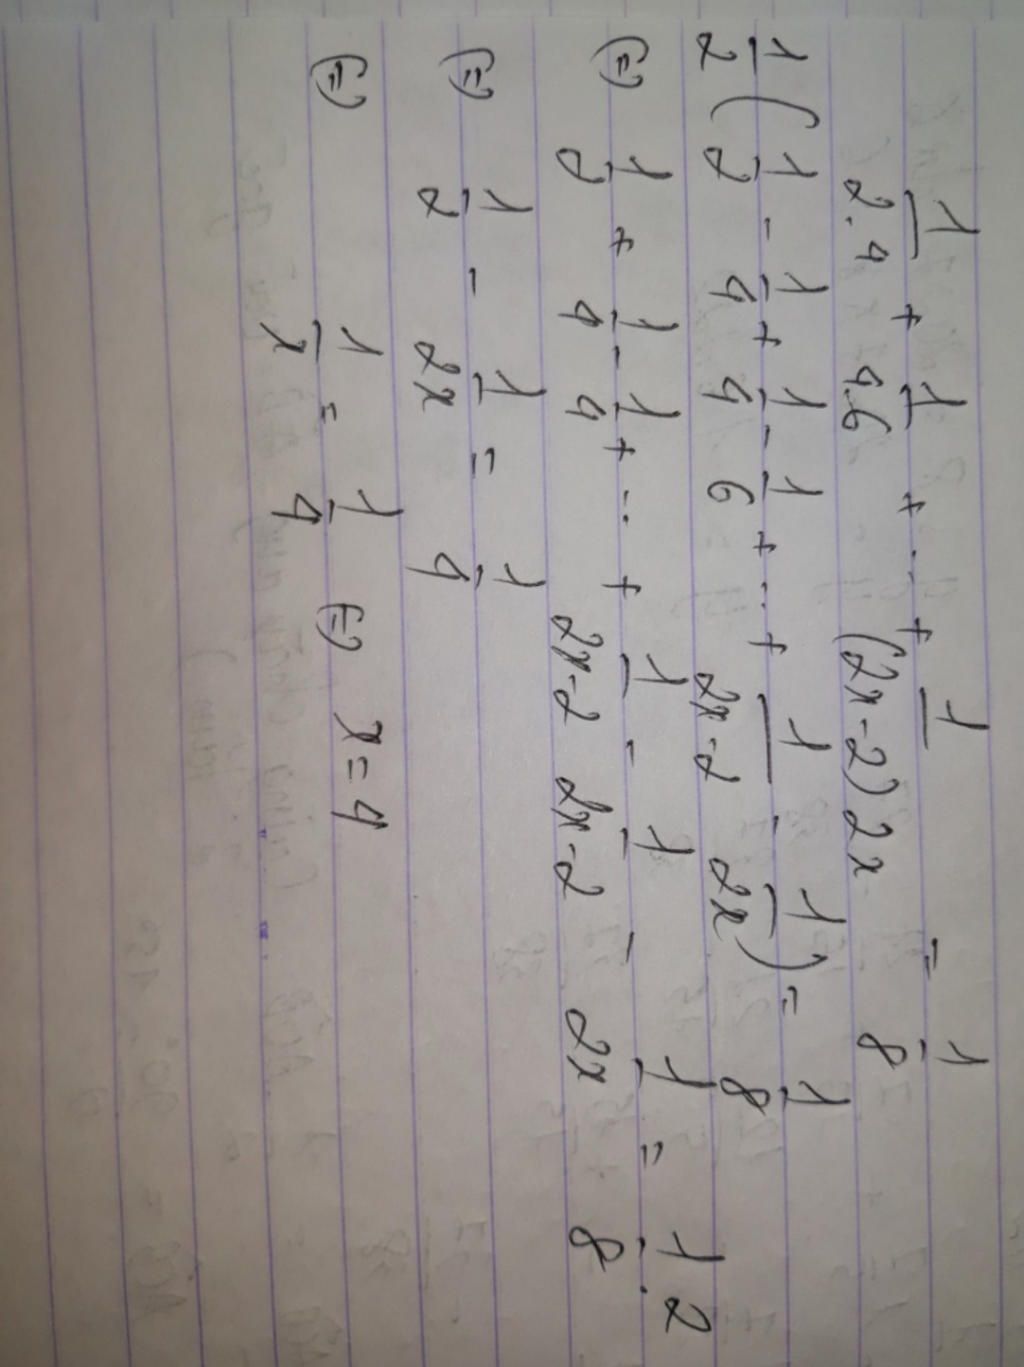 1/2.4 + 1/4.6 + ... + 1/(2x-2)2x = 1/8
1/2 (1/2 - 1/4 + 1/4 - 1/6 + ... + 1/2x-2 - 1/2x) = 1/8
(=) 1/2 + 1/4 - 1/4 + ... + 1/2x-2 - 1/2x-2 - 1/2x = 1/8 . 2
(=) 1/2 - 1/2x = 1/4
(=) 1/x = 1/4 (=) x = 4